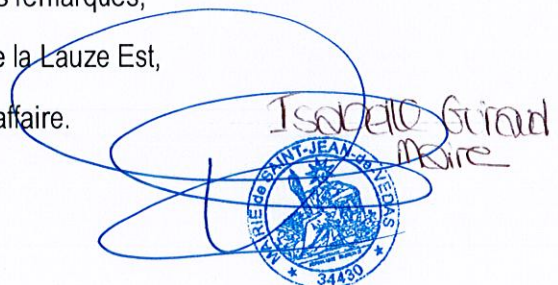 s remarques,
e la Lauze Est,
affaire.
Isabelle Giraud
Maire
MAIRIE de SAINT-JEAN-de-VEDAS
★ 34430 ★